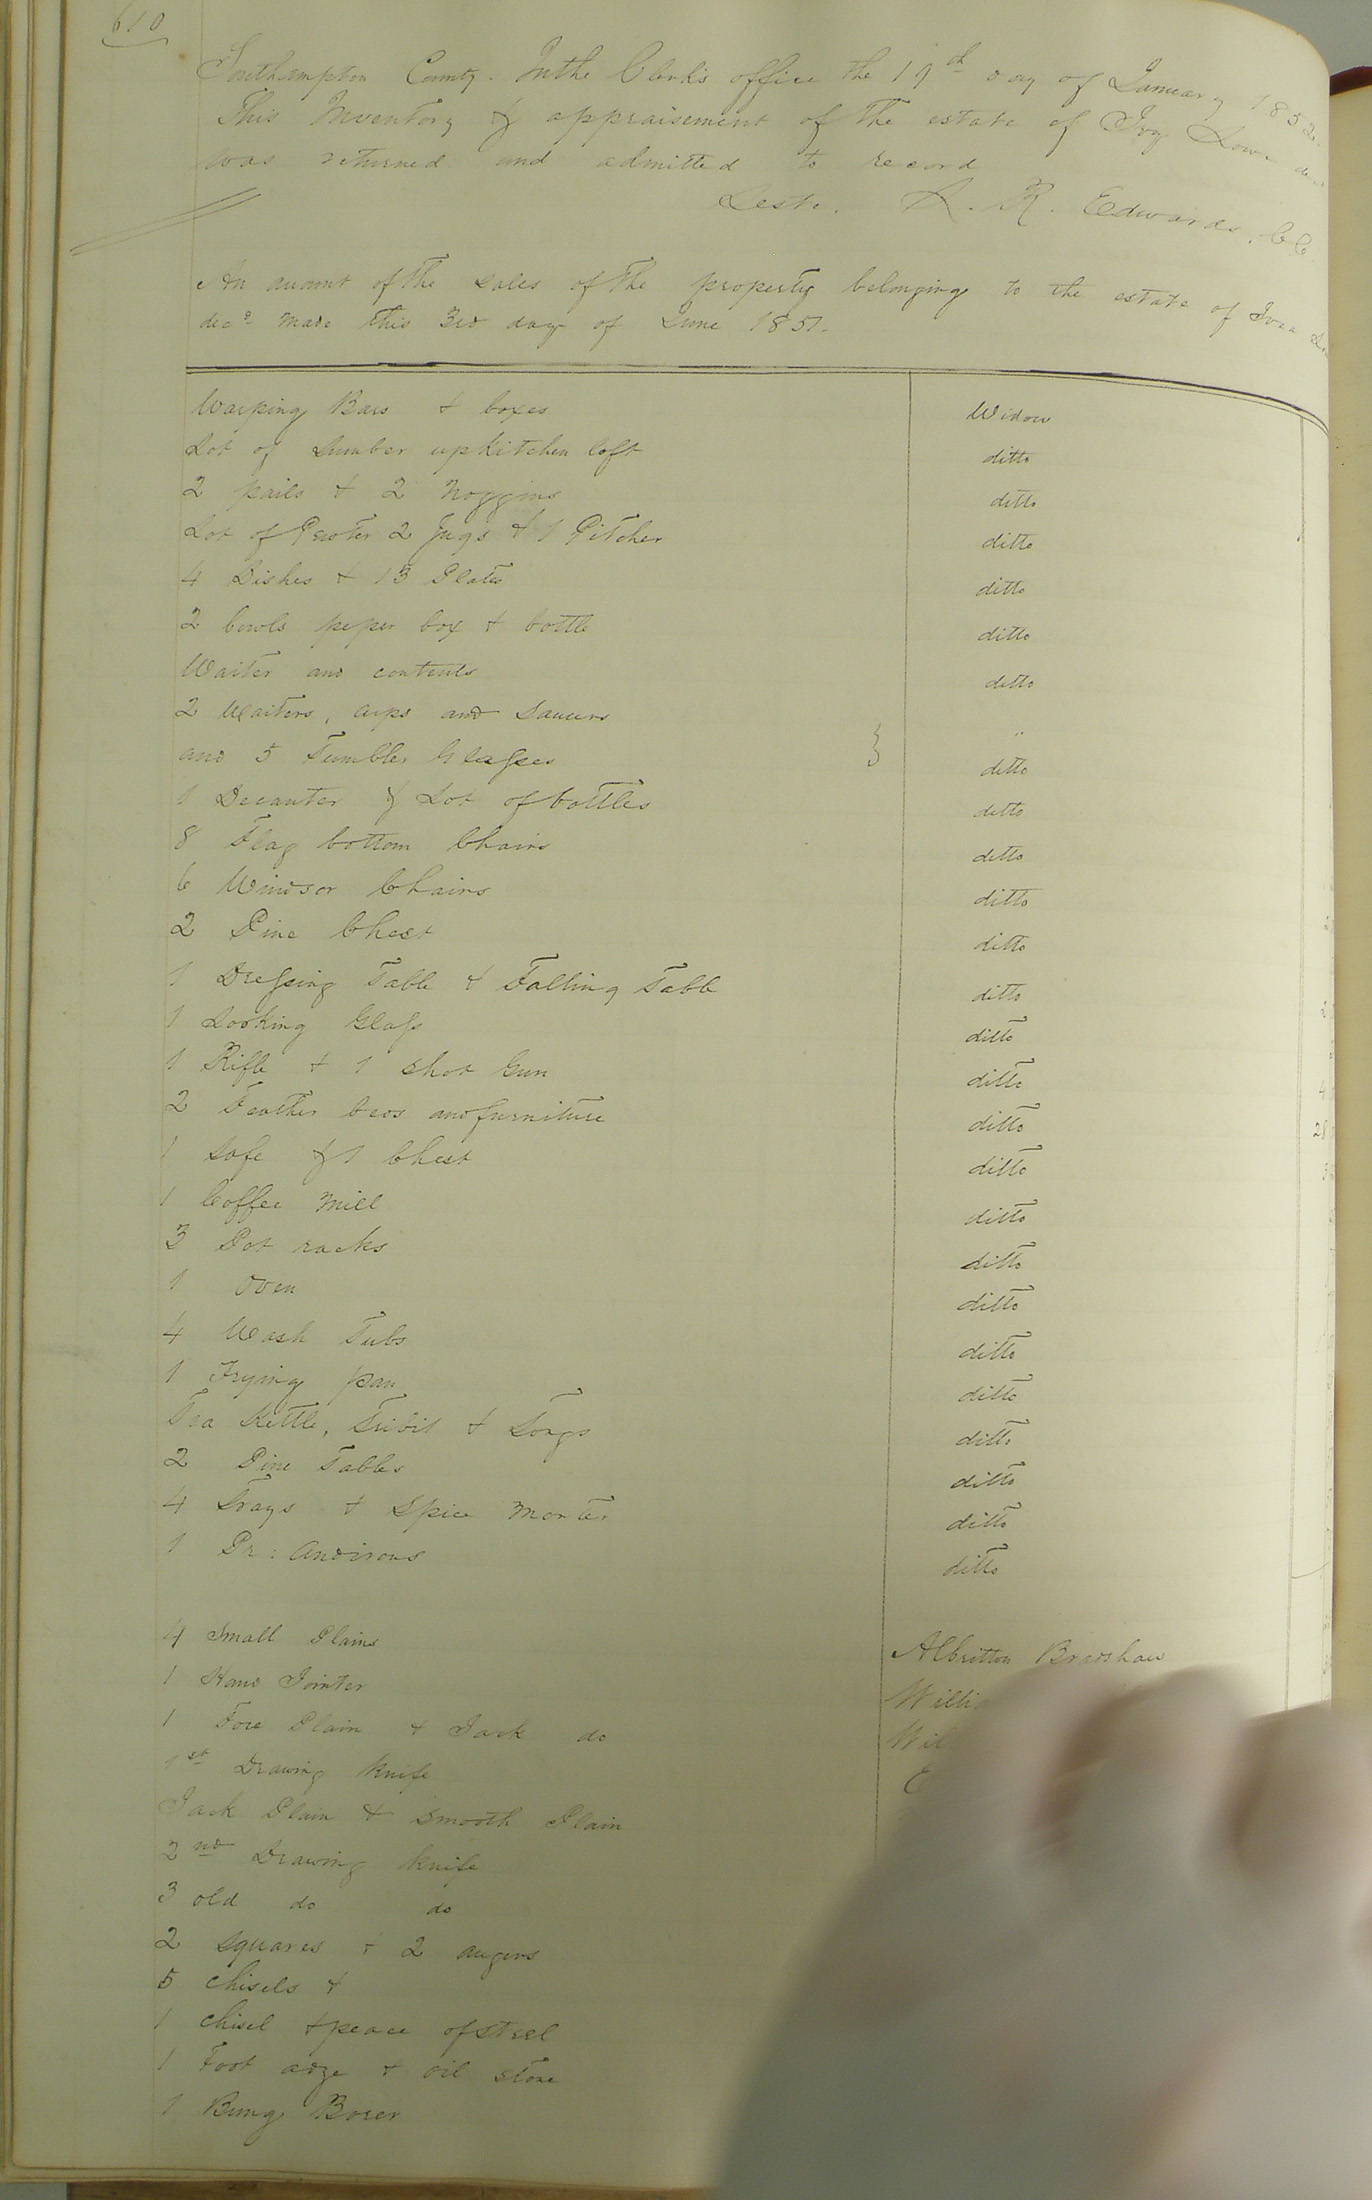 610
Southampton County. In the Clerk's office the 19th day of January 1852.
This Inventory & appraisement of the estate of Ivy
was returned and admitted to record
Teste. L. R. Edwards, CC
An acount of the sales of the property belonging to the estate of
decd. made this 3rd day of June 1851.
Warping Bars & boxes Widow
Lot of Lumber up kitchen loft ditto
2 pails & 2 Noggins ditto
Lot of Pewter 2 Jugs & 1 Pitcher ditto
4 Dishes & 13 Plates ditto
2 bowls peper box & bottle ditto
Waiter and contents ditto
2 Waiters, cups and Saucers "
and 5 Tumbler Glasses ditto
1 Decanter & Lot of bottles ditto
8 Flag bottom Chairs ditto
6 Windsor Chairs ditto
2 Pine Chest ditto
1 Dressing Table & Falling Table ditto
1 Looking Glass ditto
1 Rifle & 1 Shot Gun ditto
2 Feather beds and furniture ditto
1 Safe & 1 Chest ditto
1 Coffee Mill ditto
3 Pot racks ditto
1 Oven ditto
4 Wash Tubs ditto
1 Frying pan ditto
Tea Kettle, Tribit & Tongs ditto
2 Pine Tables ditto
4 Trays & Spice Morter ditto
1 Pr: Andirons ditto
4 Small Plains Albritton Bradshaw
1 Hand Jointer
1 Fore Plain & Jack do
1st Drawing Knife
Jack Plain & Smooth Plain
2nd Drawing Knife
3 old do do
2 Squares & 2 augers
5 Chisels &
1 Chisel & peace of Steel
1 Foot adze & oil stone
1 Bung Borer